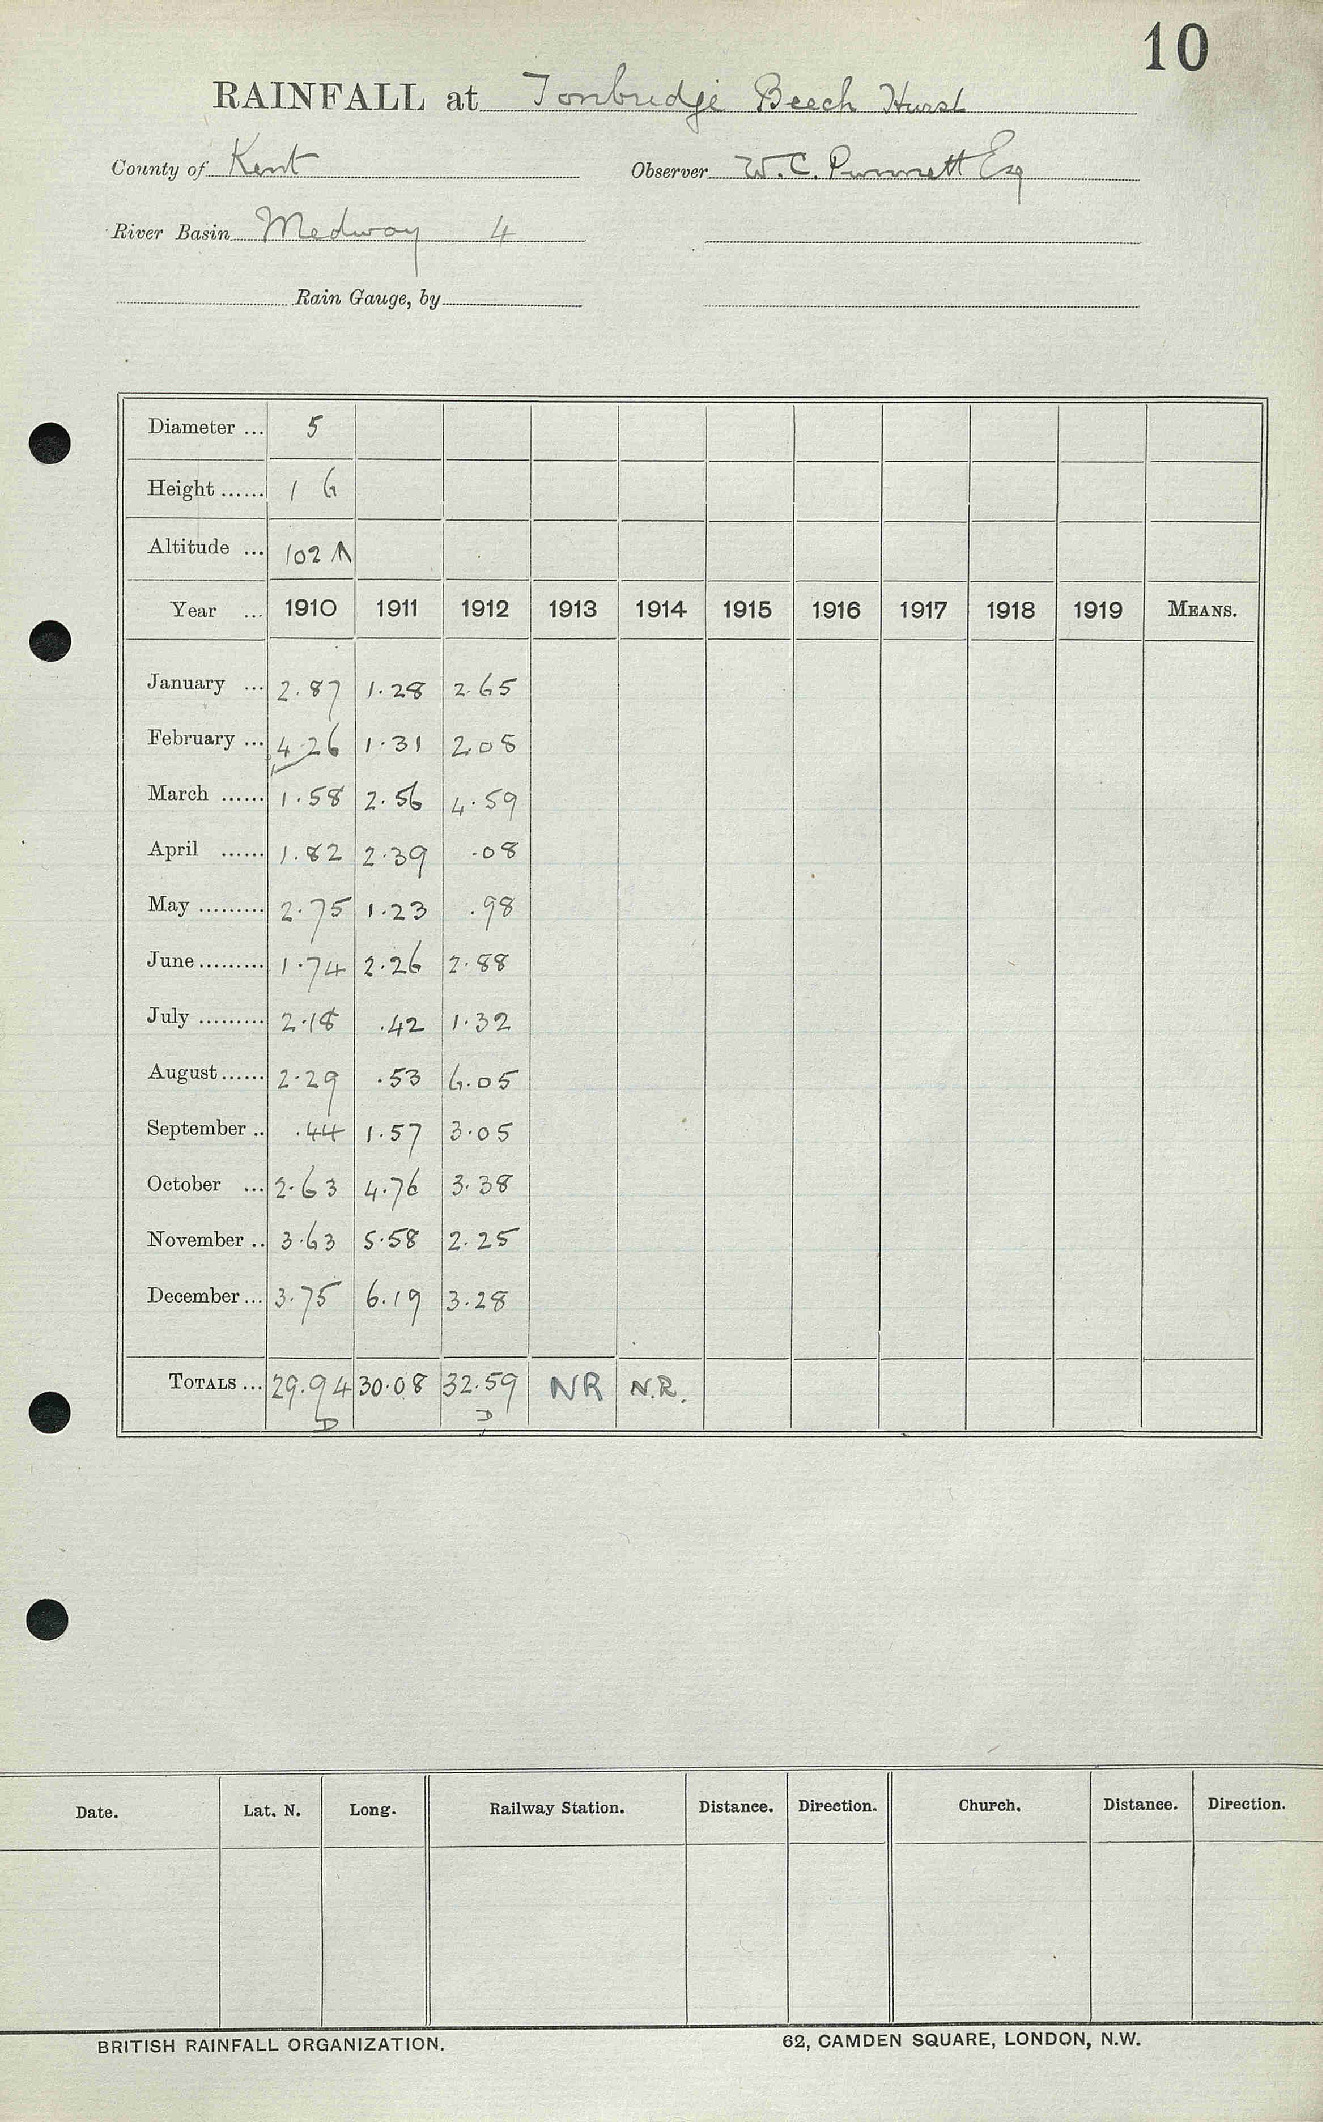 10
RAINFALL at Tonbridge Beech Hurst
County of Kent Observer W. C. Punnett Esq
River Basin Medway 4
Rain Gauge, by
Diameter ... 5
Height ...... 1 6
Altitude ... 102
Year ... 1910 1911 1912 1913 1914 1915 1916 1917 1918 1919 MEANS.
January ... 2.87 1.28 2.65
February ... 4.26 1.31 2.08
March ...... 1.58 2.56 4.59
April ...... 1.82 2.39 .08
May ......... 2.75 1.23 .98
June ......... 1.74 2.26 2.88
July ......... 2.18 .42 1.32
August ...... 2.29 .53 6.05
September .. .44 1.57 3.05
October ... 2.63 4.76 3.38
November .. 3.63 5.58 2.25
December ... 3.75 6.19 3.28
TOTALS ... 29.94 30.08 32.59 NR N.R.
D D
Date. Lat. N. Long. Railway Station. Distance. Direction. Church. Distance. Direction.
BRITISH RAINFALL ORGANIZATION. 62, CAMDEN SQUARE, LONDON, N.W.